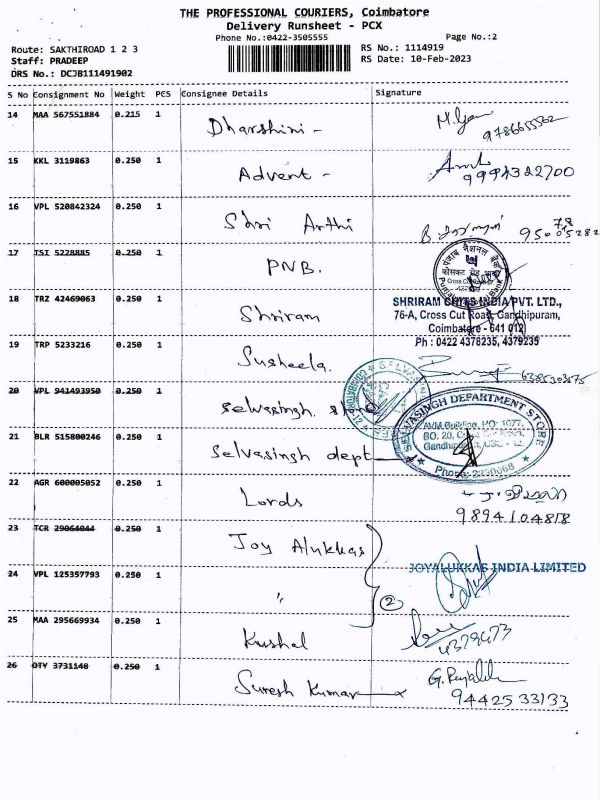 THE PROFESSIONAL COURIERS, Coimbatore
Delivery Runsheet - PCX
Phone No.:0422-3505555 Page No.:2
Route: SAKTHIROAD 1 2 3 RS No.: 1114919
Staff: PRADEEP RS Date: 10-Feb-2023
DRS No.: DCJB111491902
S No Consignment No Weight PCS Consignee Details Signature
14 MAA 567551884 0.215 1 Dharshini -
15 KKL 3119863 0.250 1 Advent -
16 VPL 520842324 0.250 1 Shri Arthi
17 TSI 5228885 0.250 1 PNB.
18 TRZ 42469063 0.250 1 Shriram
SHRIRAM CHITS INDIA PVT. LTD.,
76-A, Cross Cut Road, Gandhipuram,
Coimbatore - 641 012
Ph : 0422 4378235, 4379235
19 TRP 5233216 0.250 1 Susheela.
20 VPL 941493950 0.250 1 Selvasingh. store
21 BLR 515800246 0.250 1 Selvasingh dept
SELVASINGH DEPARTMENT STORE
Phone: 2230068
22 AGR 600005052 0.250 1 Lords
9894104818
23 TCR 29064044 0.250 1 Joy Alukkas
JOYALUKKAS INDIA LIMITED
24 VPL 125357793 0.250 1 " 2
25 MAA 295669934 0.250 1 Kushal
4379473
26 OTY 3731140 0.250 1 Suresh Kumar
9442533133